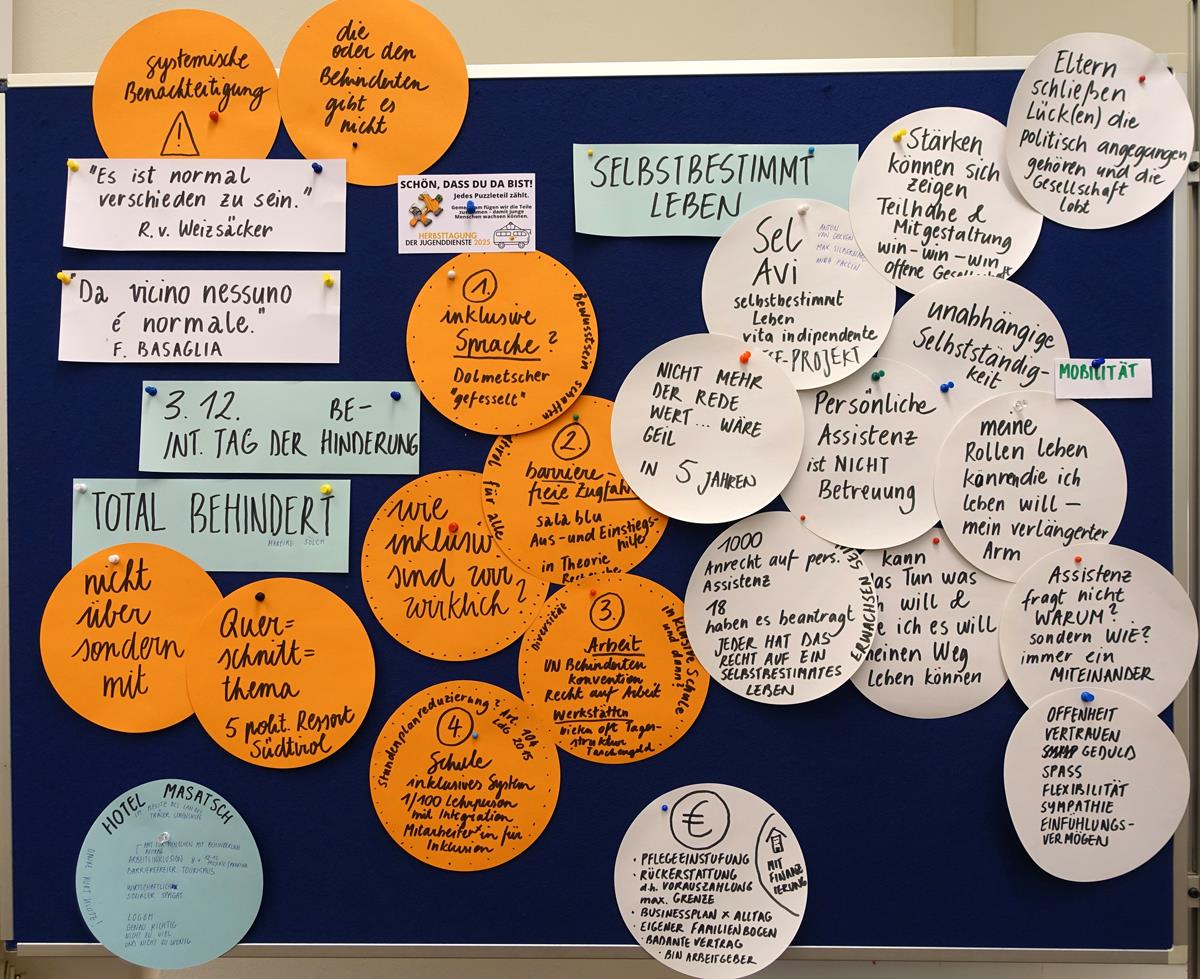 systemische
Benachteiligung
die
oder den
Behinderten
gibt es
nicht
"Es ist normal
verschieden zu sein."
R. v. Weizsäcker
"Da vicino nessuno
é normale."
F. BASAGLIA
3. 12. BE-
INT. TAG DER HINDERUNG
TOTAL BEHINDERT
nicht
über
sondern
mit
Quer=
schnitt=
thema
5 polit. Ressort
Südtirol
HOTEL MASATSCH
ARBEITSINKLUSION
BARRIEREFREIER TOURISMUS
WIRTSCHAFTLICH
SOZIALER SPAGAT
LOGOM
GENAU RICHTIG
NICHT ZU VIEL
UND NICHT ZU WENIG
SCHÖN, DASS DU DA BIST!
Jedes Puzzleteil zählt.
Gemeinsam fügen wir die Teile
zusammen - damit junge
Menschen wachsen können.
HERBSTTAGUNG
DER JUGENDDIENSTE 2025
1.
inklusive
Sprache?
Dolmetscher
"gefesselt"
Bewusstsein schaffen
2.
barriere-
freie Zugfahrt
sala blu
Aus- und Einstiegs-
hilfe
in Theorie
für alle
wie
inklusiv
sind wir
wirklich?
3.
Arbeit
UN Behinderten
konvention
Recht auf Arbeit
Werkstätten
bieten oft Tages-
struktur
Taschengeld
Diversität
inklusive Schule
und dann?
4
Schule
inklusives System
1/100 Lehrperson
mit Integration
Mitarbeiter*in für
Inklusion
Stundenplanreduzierung?
Art. 104
LdG 2015
SELBSTBESTIMMT
LEBEN
Stärken
können sich
zeigen
Teilhabe &
Mitgestaltung
win-win-win
offene Gesellschaft
Eltern
schließen
Lück(en) die
politisch angegangen
gehören und die
Gesellschaft
lobt
Sel
Avi
selbstbestimmt
Leben
vita indipendente
ESF-PROJEKT
unabhängige
Selbstständig-
keit
MOBILITÄT
NICHT MEHR
DER REDE
WERT... WÄRE
GEIL
IN 5 JAHREN
Persönliche
Assistenz
ist NICHT
Betreuung
meine
Rollen leben
können die ich
leben will -
mein verlängerter
Arm
1000
Anrecht auf pers.
Assistenz
18
haben es beantragt
JEDER HAT DAS
RECHT AUF EIN
SELBSTBESTIMMTES
LEBEN
ERWACHSEN SEIN
kann
das Tun was
will &
ich es will
meinen Weg
Leben können
Assistenz
fragt nicht
WARUM?
sondern WIE?
immer ein
MITEINANDER
OFFENHEIT
VERTRAUEN
GEDULD
SPASS
FLEXIBILITÄT
SYMPATHIE
EINFÜHLUNGS-
VERMÖGEN
€
· PFLEGEEINSTUFUNG
· RÜCKERSTATTUNG
d.h. VORAUSZAHLUNG
max. GRENZE
· BUSINESSPLAN x ALLTAG
· EIGENER FAMILIENBOGEN
· BADANTE VERTRAG
· BIN ARBEITGEBER
MIT
FINANZ
IERUNG